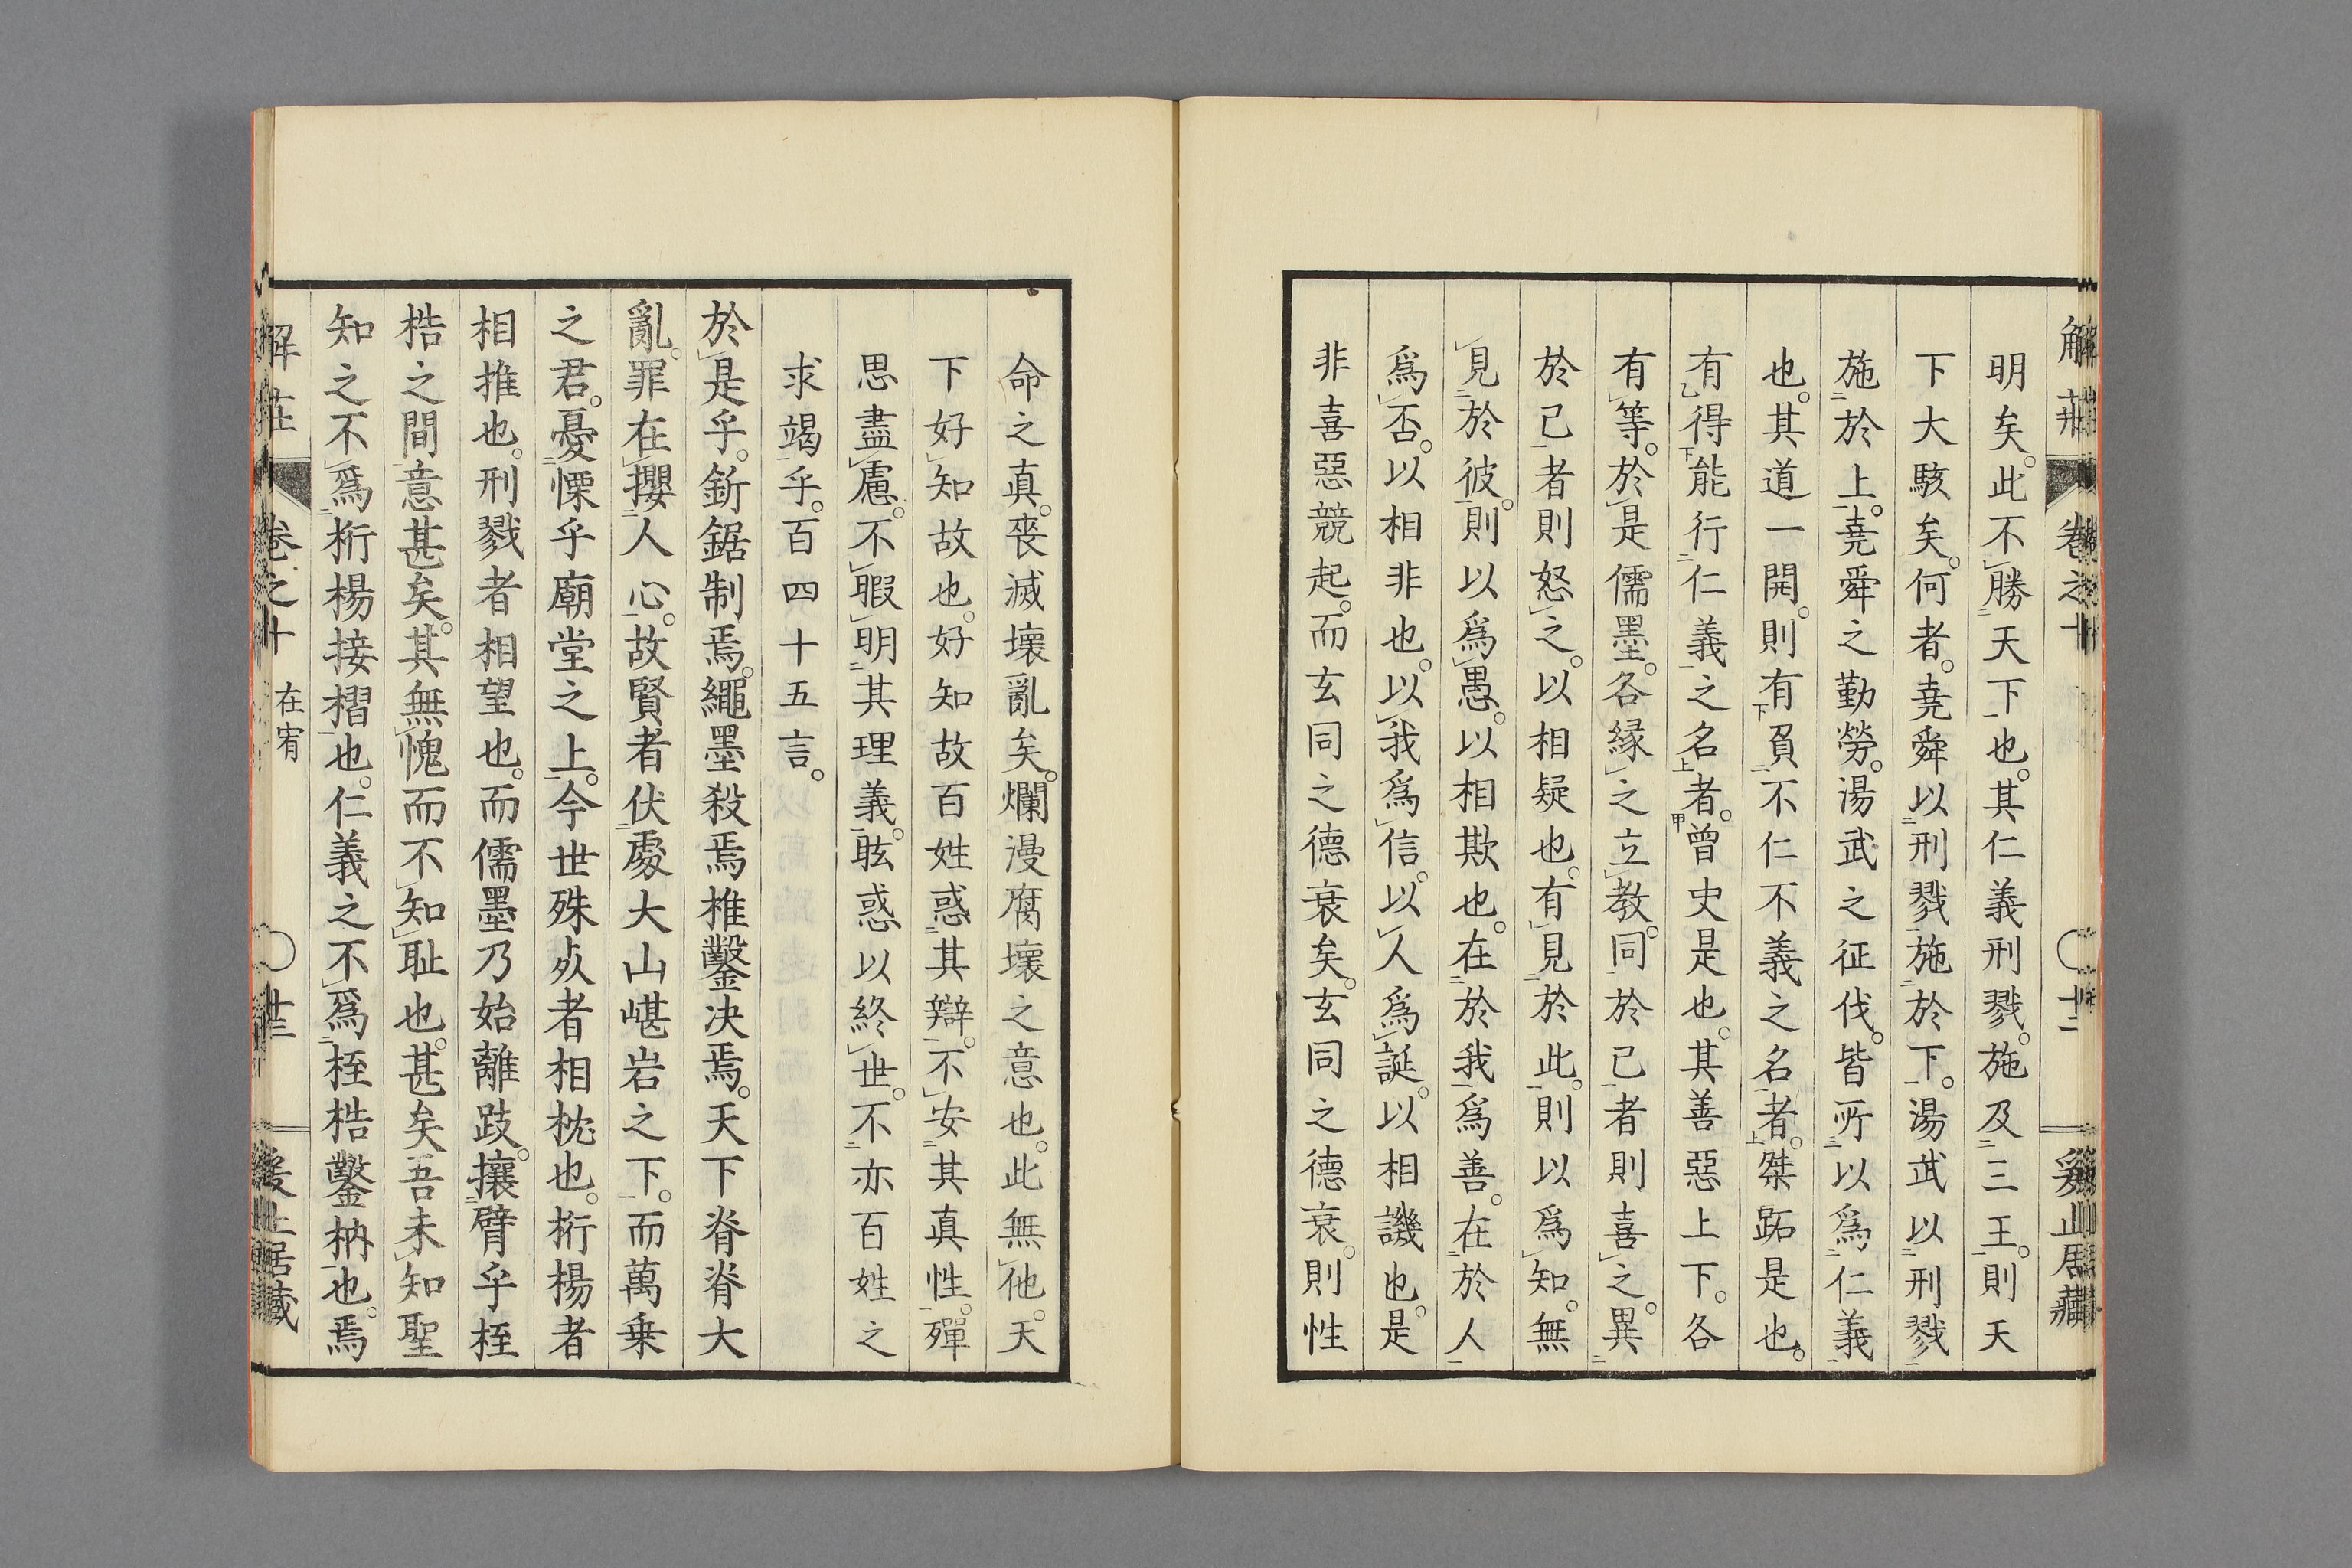 解莊 卷之十 〇十二 爰止居藏
明矣。此不勝天下也。其仁義刑戮。施及三王。則天
下大駭矣。何者。堯舜以刑戮施於下。湯武以刑戮
施於上。堯舜之勤勞。湯武之征伐。皆所以爲仁義
也。其道一開。則有負不仁不義之名者。桀跖是也。
有得能行仁義之名者。曾史是也。其善惡上下。各
有等。於是儒墨。各緣之立教。同於己者則喜之。異
於己者則怒之。以相疑也。有見於此。則以爲知。無
見於彼。則以爲愚。以相欺也。在於我爲善。在於人
爲否。以相非也。以我爲信。以人爲誕。以相譏也。是
非喜惡競起。而玄同之德衰矣。玄同之德衰。則性
命之真。喪滅壞亂矣。爛漫腐壞之意也。此無他。天
下好知故也。好知故百姓惑其辯。不安其真性。殫
思盡慮。不暇明其理義。眩惑以終世。不亦百姓之
求竭乎。百四十五言。
於是乎。釿鋸制焉。繩墨殺焉椎鑿决焉。天下脊脊大
亂。罪在攖人心。故賢者伏處大山嵁岩之下。而萬乗
之君。憂慄乎廟堂之上。今世殊㱁者相枕也。桁楊者
相推也。刑戮者相望也。而儒墨乃始離跂。攘臂乎桎
梏之間。意甚矣。其無愧而不知耻也。甚矣吾未知聖
知之不爲桁楊接槢也。仁義之不爲桎梏鑿枘也。焉
解莊 卷之十 在宥 〇廿三 爰止居藏